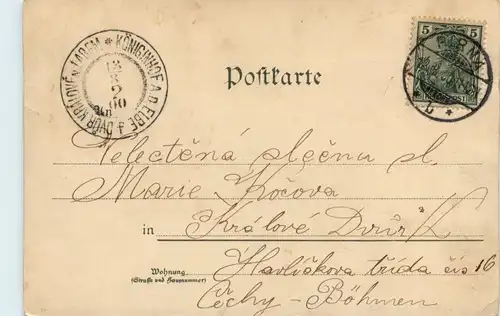 KÖNIGINHOF A.D. ELBE * DVŮR KRÁLOVÉ N. LABEM *
Postkarte
5 5
Velectěná slečna sl.
Marie Kočova
in Králové Dvůr
Wohnung
(Straße und Hausnummer)
Havlíčkova třída čís 16
Čechy - Böhmen